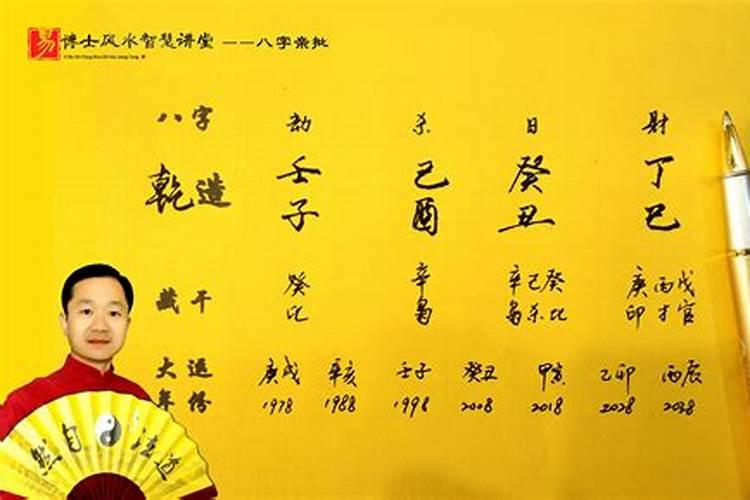 易 博士风水智慧讲堂 ——八字亲批
八字 劫 杀 日 財
乾造 壬 己 癸 丁
子 酉 丑 巳
藏干 癸 辛 辛己癸 庚丙戊
比 枭 枭杀比 印才官
大運 庚戌 辛亥 壬子 癸丑 甲寅 乙卯 丙辰
年份 1978 1988 1998 2008 2018 2028 2038
然自法道